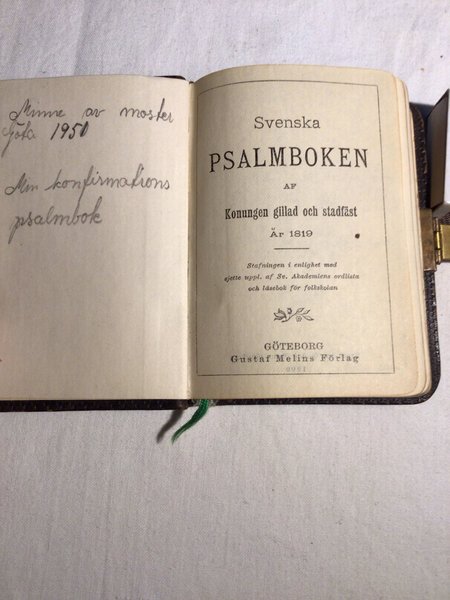 Minne av moster
Göta 1950
Min konfirmations
psalmbok
Svenska
PSALMBOKEN
AF
Konungen gillad och stadfäst
År 1819
Stafningen i enlighet med
sjette uppl. af Sv. Akademiens ordlista
och läsebok för folkskolan
GÖTEBORG
Gustaf Melins Förlag